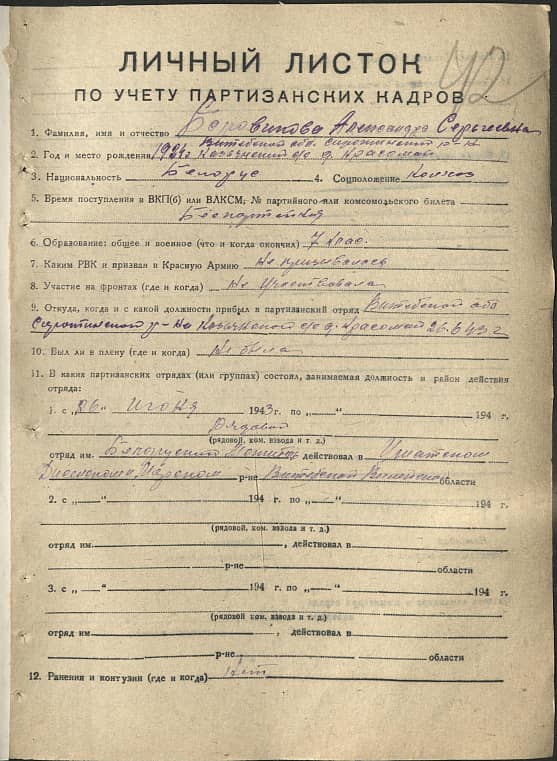 42
ЛИЧНЫЙ ЛИСТОК
ПО УЧЕТУ ПАРТИЗАНСКИХ КАДРОВ
1. Фамилия, имя и отчество Боровикова Александра Сергеевна
2. Год и место рождения Витебской обл. Сиротинский р-н
д. Красомай
3. Национальность Белорус 4. Соцположение Колхоз
5. Время поступления в ВКП(б) или ВЛКСМ, № партийного или комсомольского билета
Беспартейная
6. Образование: общее и военное (что и когда окончил) 7 клас.
7. Каким РВК и призван в Красную Армию Не призывалась
8. Участие на фронтах (где и когда) Не участвовала
9. Откуда, когда и с какой должности прибыл в партизанский отряд Витебской обл
Сиротинского р-на с/с д. Красомай 26.6.43 г
10. Был ли в плену (где и когда) Не была
11. В каких партизанских отрядах (или группах) состоял, занимаемая должность и район действия
отряда:
1. с „26“ Июня 1943 г. по „—“ 194 г.
Рядовой
(рядовой, ком. взвода и т. д.)
отряд им. действовал в Ушатском
р-не Витебской области
2. с „—“ 194 г. по „—“ 194 г.
(рядовой, ком. взвода и т. д.)
отряд им. , действовал в
р-не области
3. с „—“ 194 г. по „—“ 194 г.
(рядовой, ком. взвода и т. д.)
отряд им. , действовал в
р-не области
12. Ранения и контузии (где и когда) Нет